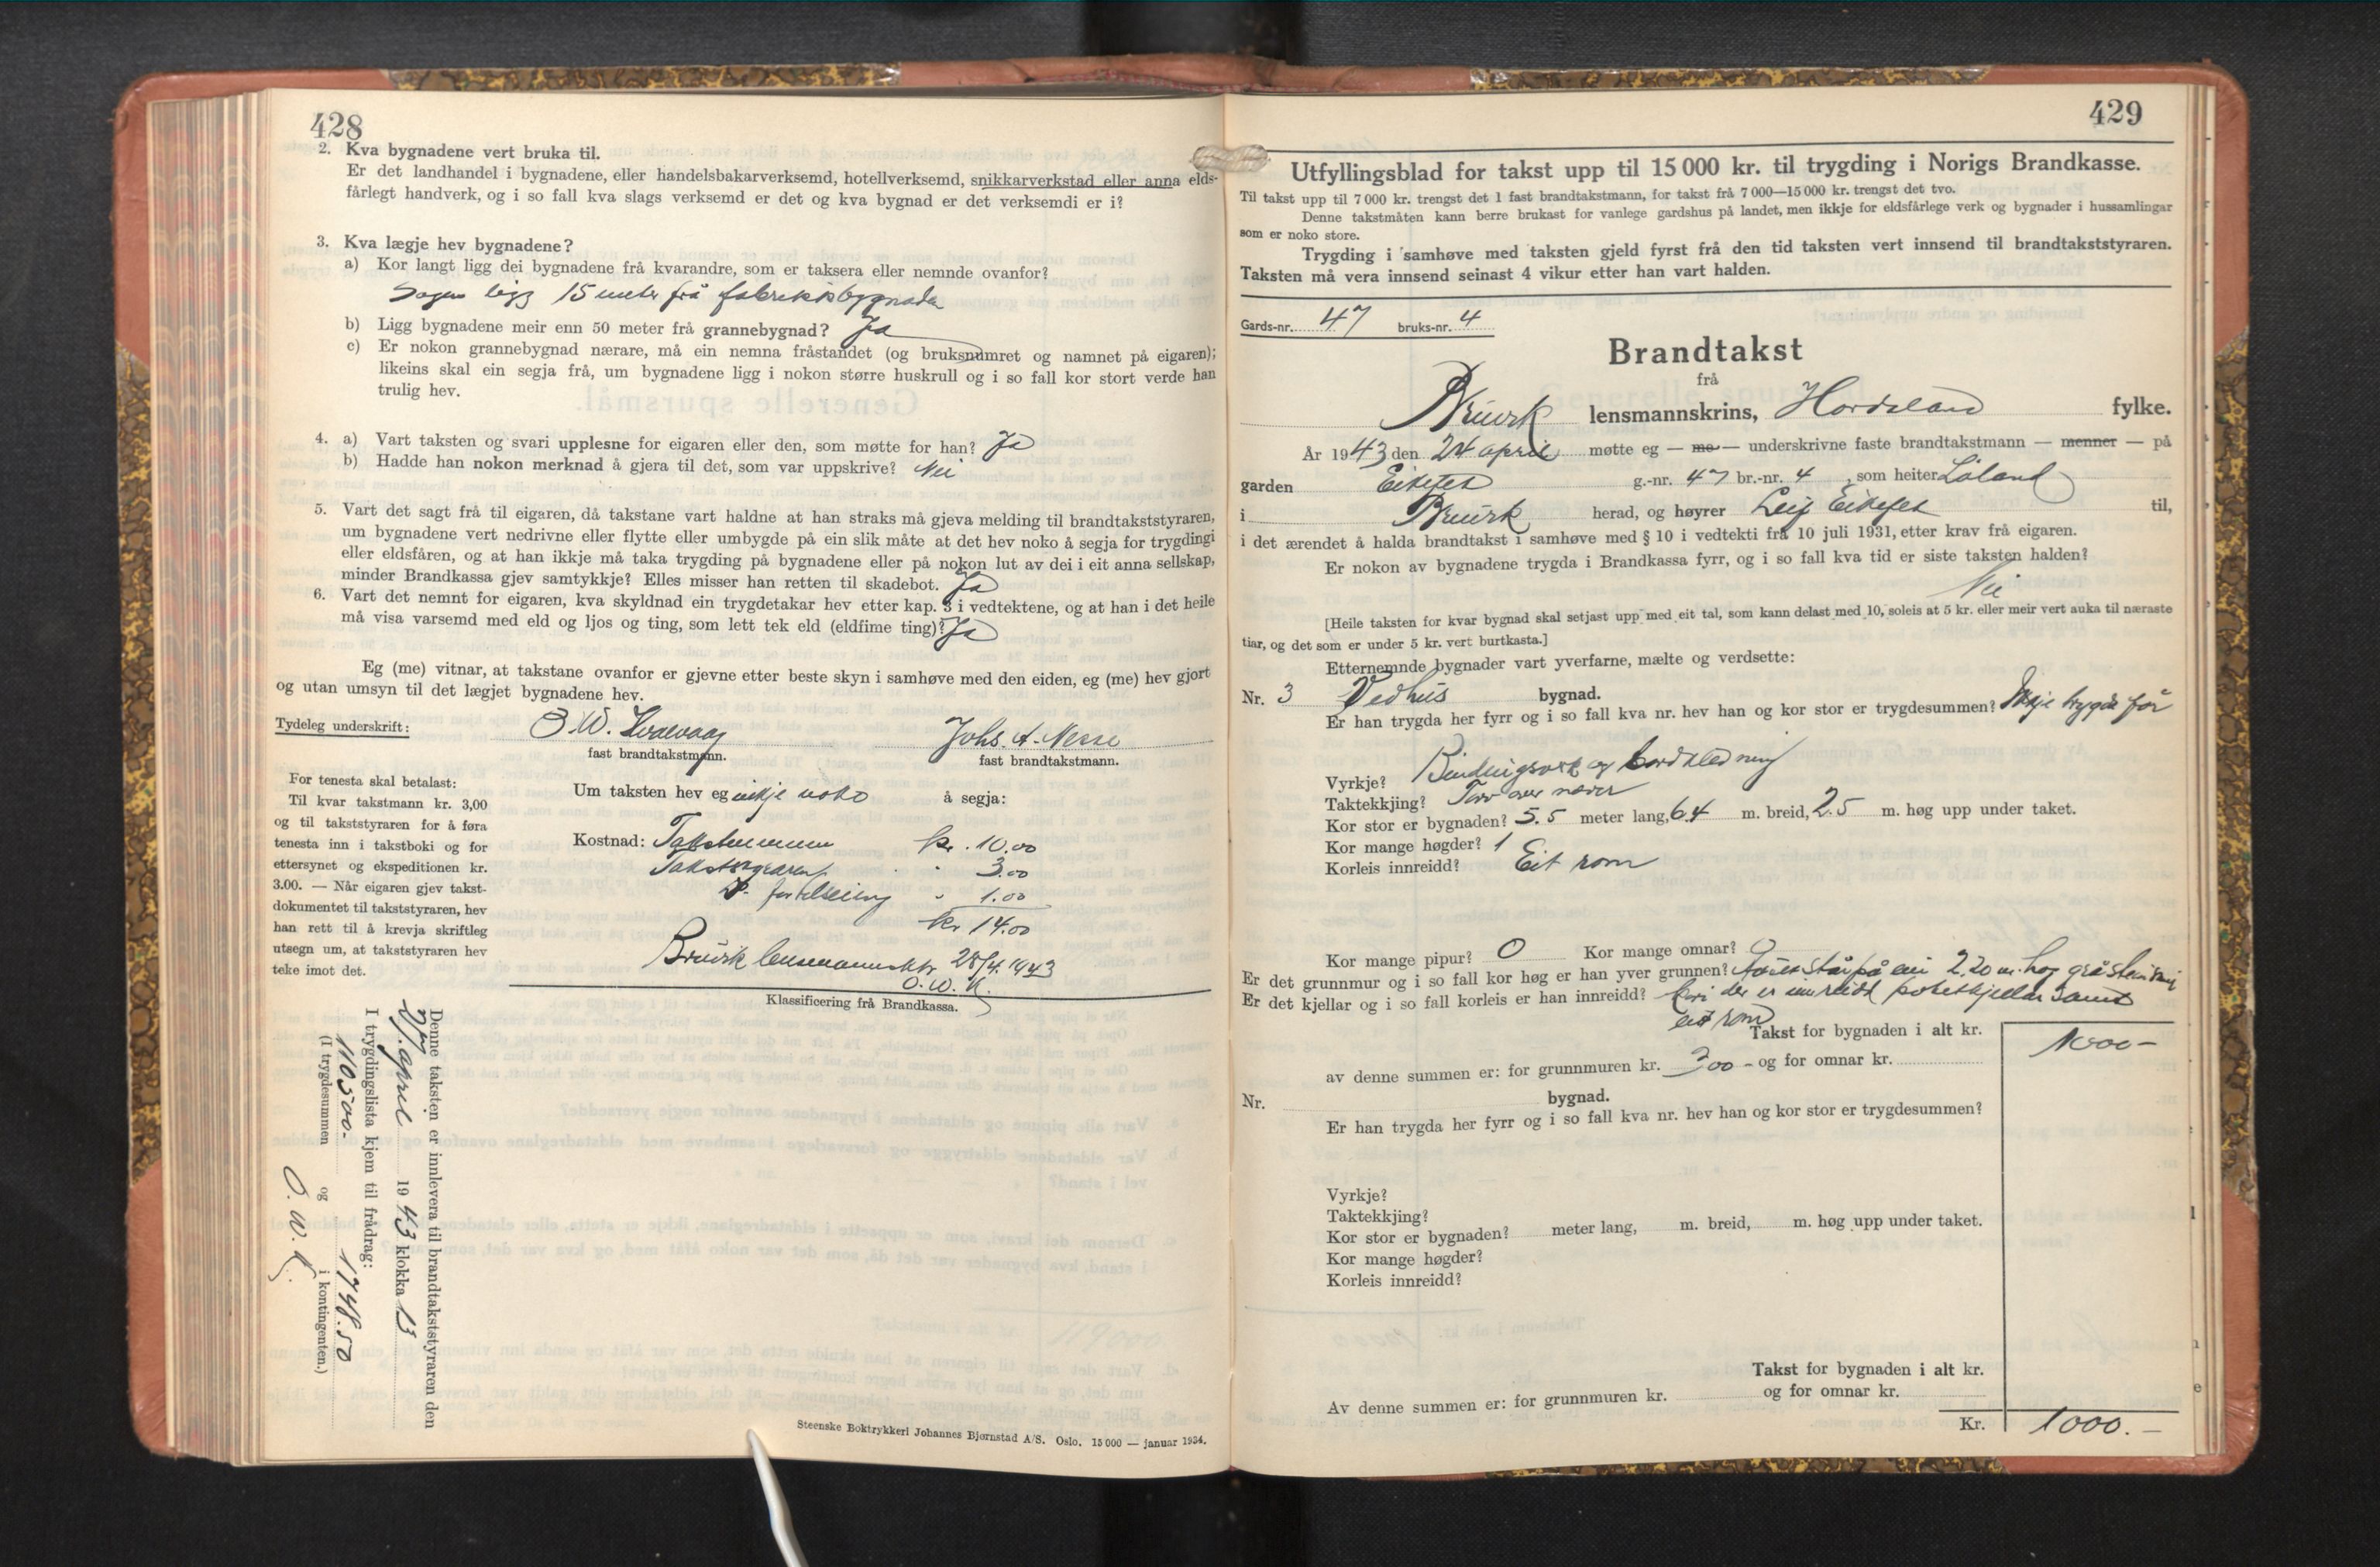 428
2. Kva bygnadene vert bruka til.
Er det landhandel i bygnadene, eller handelsbakarverksemd, hotellverksemd, snikkarverkstad eller anna elds-
fårlegt handverk, og i so fall kva slags verksemd er det og kva bygnad er det verksemdi er i?
3. Kva lægje hev bygnadene?
a) Kor langt ligg dei bygnadene frå kvarandre, som er taksera eller nemnde ovanfor?
Sagen ligg 15 meter frå fabrikkbygnaden
b) Ligg bygnadene meir enn 50 meter frå grannebygnad? Ja
c) Er nokon grannebygnad nærare, må ein nemna fråstandet (og bruksnumret og namnet på eigaren);
likeins skal ein segja frå, um bygnadene ligg i nokon større huskrull og i so fall kor stort verde han
trulig hev.
4. a) Vart taksten og svari upplesne for eigaren eller den, som møtte for han? Ja
b) Hadde han nokon merknad å gjera til det, som var uppskrive? Nei
5. Vart det sagt frå til eigaren, då takstane vart haldne at han straks må gjeva melding til brandtakststyraren,
um bygnadene vert nedrivne eller flytte eller umbygde på ein slik måte at det hev noko å segja for trygdingi
eller eldsfåren, og at han ikkje må taka trygding på bygnadene eller på nokon lut av dei i eit anna sellskap,
minder Brandkassa gjev samtykkje? Elles misser han retten til skadebot. Ja
6. Vart det nemnt for eigaren, kva skyldnad ein trygdetakar hev etter kap. 3 i vedtektene, og at han i det heile
må visa varsemd med eld og ljos og ting, som lett tek eld (eldfime ting)? Ja
Eg (me) vitnar, at takstane ovanfor er gjevne etter beste skyn i samhøve med den eiden, eg (me) hev gjort
og utan umsyn til det lægjet bygnadene hev.
Tydeleg underskrift: Johs. A. Nesse
fast brandtakstmann. fast brandtakstmann.
For tenesta skal betalast:
Til kvar takstmann kr. 3,00
og til takststyraren for å føra
tenesta inn i takstboki og for
ettersynet og ekspeditionen kr.
3.00. — Når eigaren gjev takst-
dokumentet til takststyraren, hev
han rett til å krevja skriftleg
utsegn um, at takststyraren hev
teke imot det.
Um taksten hev eg inkje noko å segja:
Kostnad: Takstmennene kr. 10.00
Takststyraren " 3.00
" 1.00
kr 14.00
Bruvik lensmannsktr 28/4 1943
O. W. K.
Klassificering frå Brandkassa.
Denne taksten er innlevera til brandtakststyraren den
27. april 1943 klokka 13
I trygdingslista kjem til frådrag:
110500.- og 1748.50
(I trygdesummen i kontingenten.)
O. W. K.
Steenske Boktrykkeri Johannes Bjørnstad A/S. Oslo. 15 000 — januar 1934.
429
Utfyllingsblad for takst upp til 15 000 kr. til trygding i Norigs Brandkasse.
Til takst upp til 7 000 kr. trengst det 1 fast brandtakstmann, for takst frå 7 000—15 000 kr. trengst det tvo.
Denne takstmåten kann berre brukast for vanlege gardshus på landet, men ikkje for eldsfårlege verk og bygnader i hussamlingar
som er noko store.
Trygding i samhøve med taksten gjeld fyrst frå den tid taksten vert innsend til brandtakststyraren.
Taksten må vera innsend seinast 4 vikur etter han vart halden.
Gards-nr. 47 bruks-nr. 4
Brandtakst
frå
Bruvik lensmannskrins, Hordaland fylke.
År 1943 den 24 april møtte eg — me — underskrivne faste brandtakstmann — menner — på
garden Eikefet g.-nr. 47 br.-nr. 4, som heiter Løland
i Bruvik herad, og høyrer Leif Eikefet til,
i det ærendet å halda brandtakst i samhøve med § 10 i vedtekti frå 10 juli 1931, etter krav frå eigaren.
Er nokon av bygnadene trygda i Brandkassa fyrr, og i so fall kva tid er siste taksten halden?
Nei
[Heile taksten for kvar bygnad skal setjast upp med eit tal, som kann delast med 10, soleis at 5 kr. eller meir vert auka til næraste
tiar, og det som er under 5 kr. vert burtkasta.]
Etternemnde bygnader vart yverfarne, mælte og verdsette:
Nr. 3 Vedhus bygnad.
Er han trygda her fyrr og i so fall kva nr. hev han og kor stor er trygdesummen? Ikkje trygda før
Vyrkje? Bindingsverk og bordkledning
Taktekkjing? Torv over never
Kor stor er bygnaden? 5.5 meter lang, 6.4 m. breid, 2.5 m. høg upp under taket.
Kor mange høgder? 1
Korleis innreidd? Eit rom
Kor mange pipur? 0 Kor mange omnar? 0
Er det grunnmur og i so fall kor høg er han yver grunnen? Huset står på ein 2,20 m. høg gråsteinsmur
Er det kjellar og i so fall korleis er han innreidd? kvori der er innreidd potetkjellar samt
eit rom
Takst for bygnaden i alt kr. 1000 –
av denne summen er: for grunnmuren kr. 300 – og for omnar kr.
Nr. bygnad.
Er han trygda her fyrr og i so fall kva nr. hev han og kor stor er trygdesummen?
Vyrkje?
Taktekkjing?
Kor stor er bygnaden? meter lang, m. breid, m. høg upp under taket.
Kor mange høgder?
Korleis innreidd?
Takst for bygnaden i alt kr.
Av denne summen er: for grunnmuren kr. og for omnar kr.
Kr. 1000. –